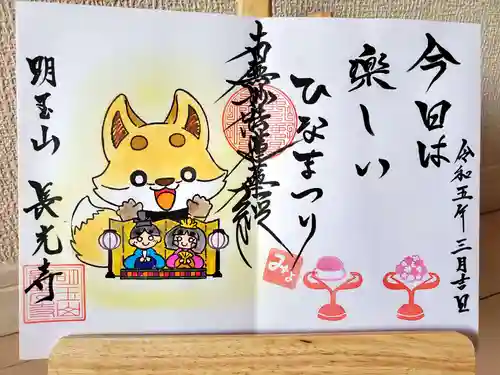 今日は
楽しい
ひなまつり
令和五年 三月吉日
南無妙法蓮華経
みな
明玉山 長光寺